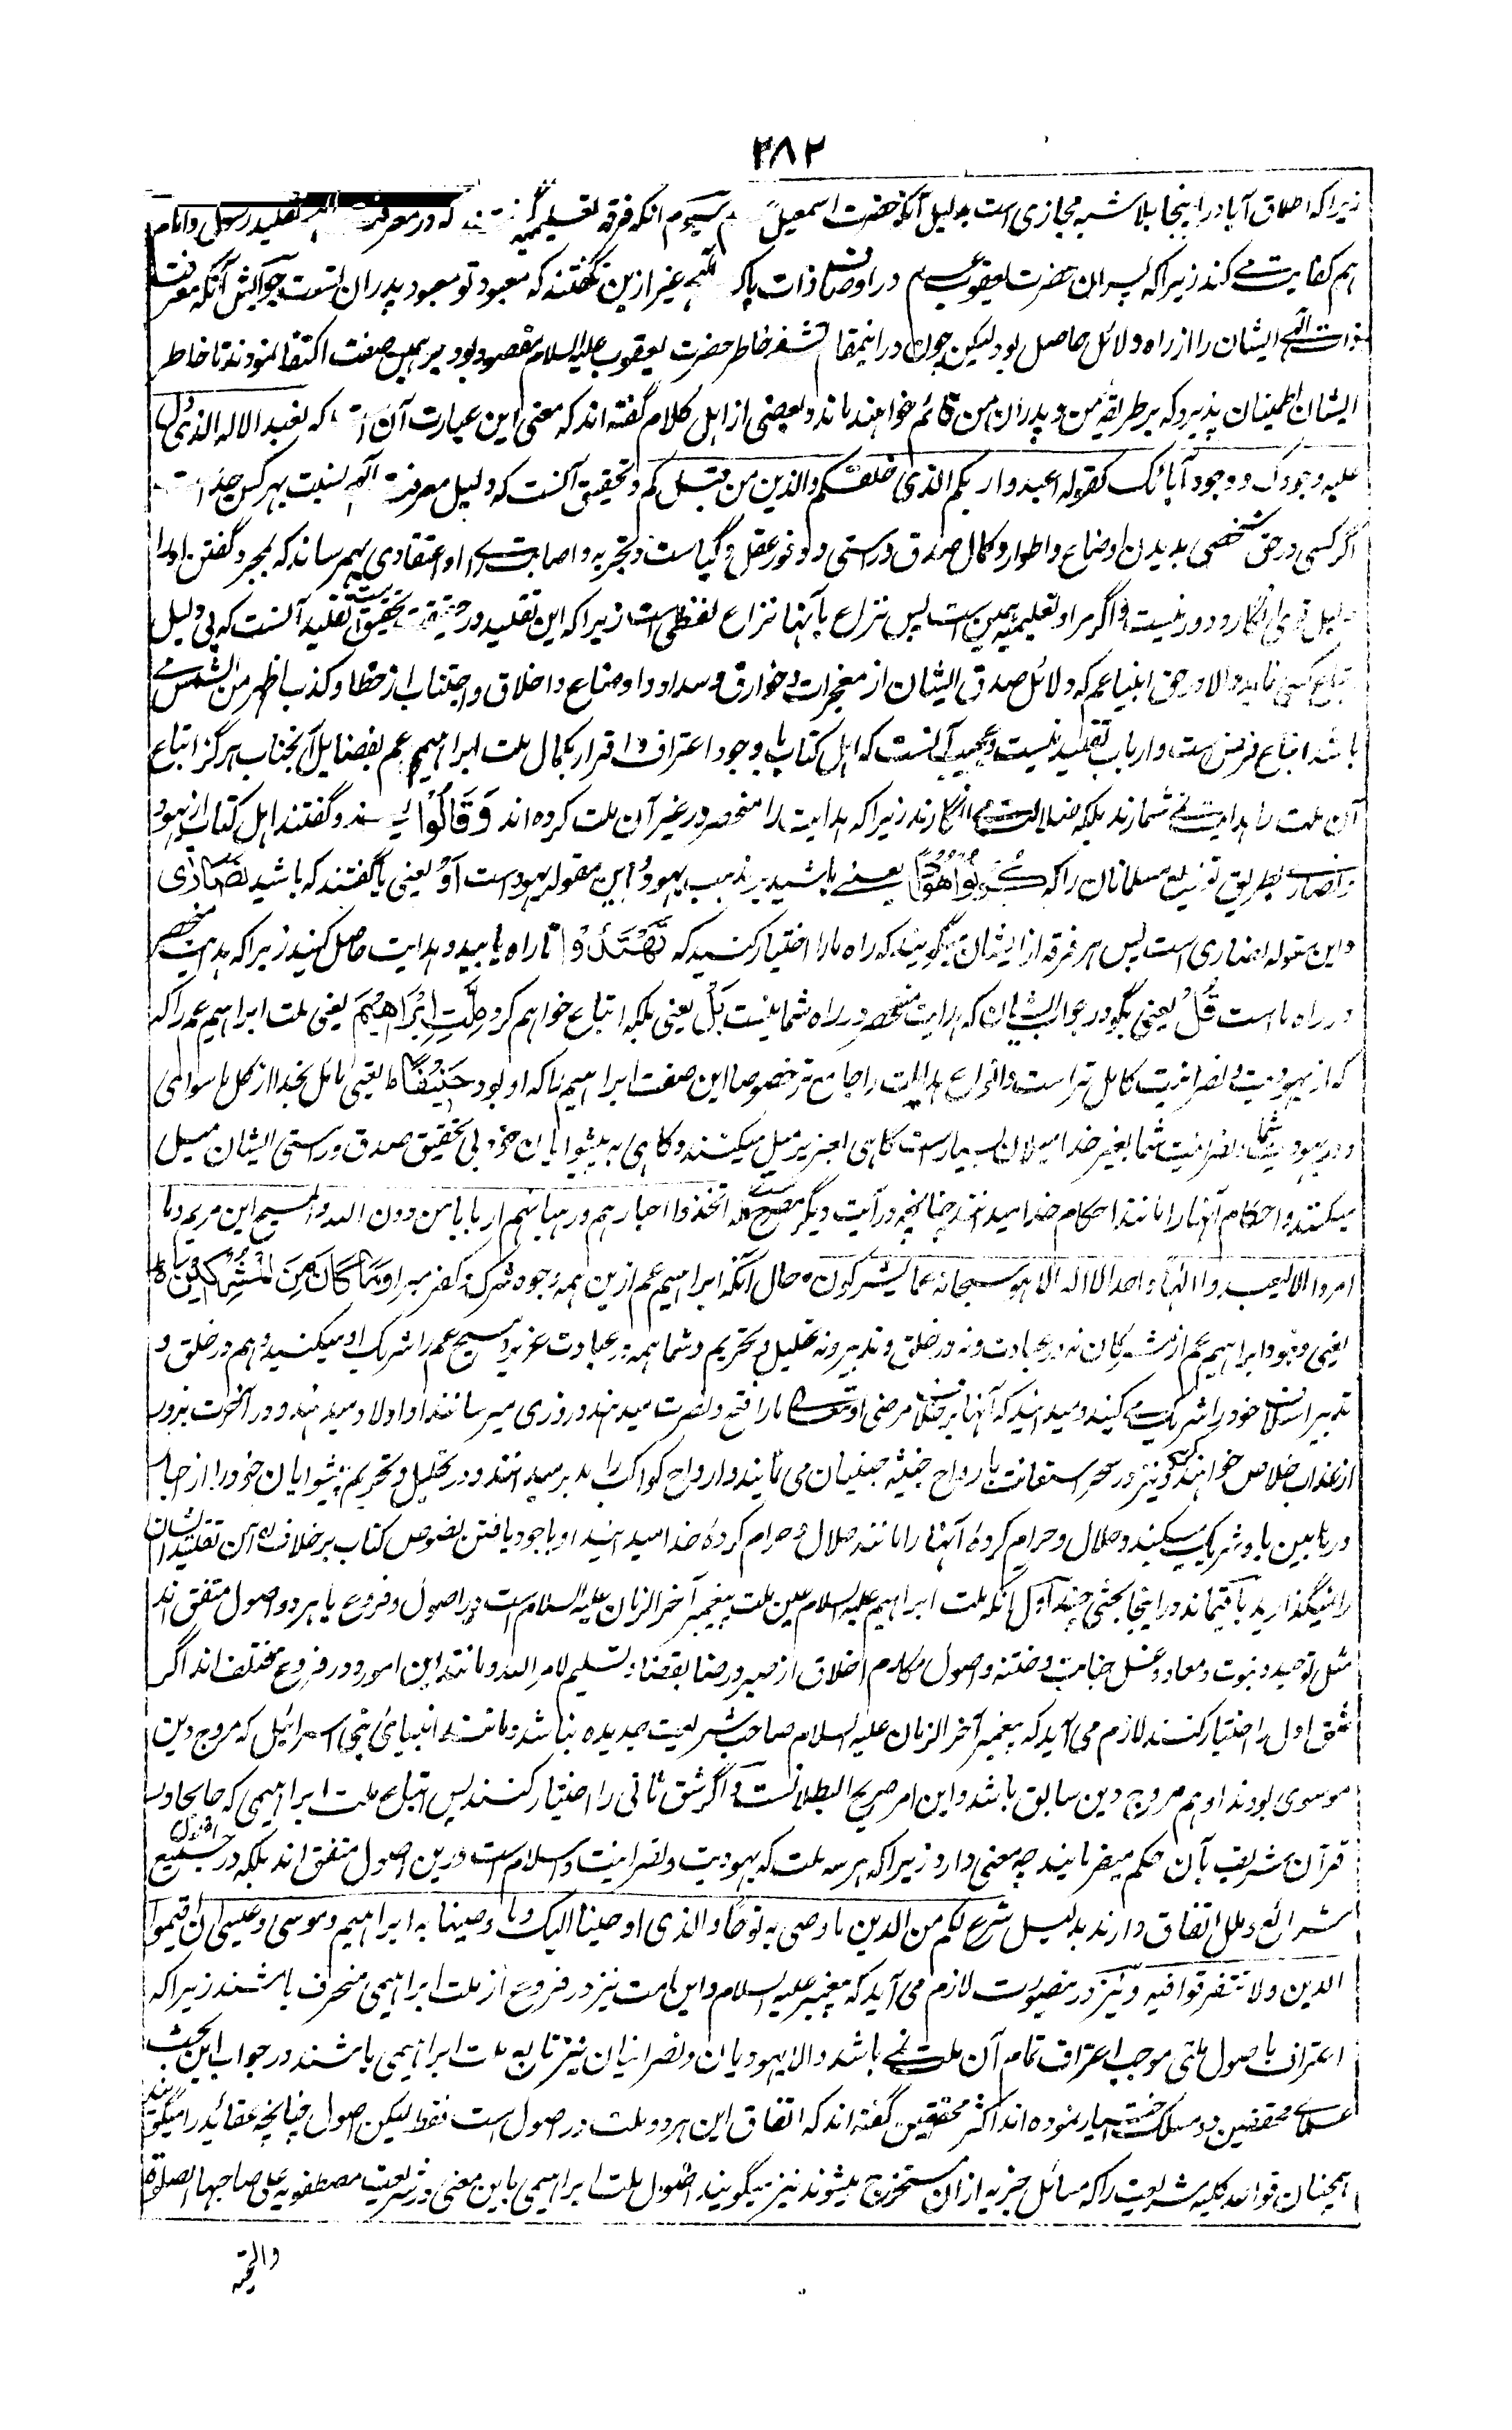 ۲۸۲
زیرا که اطلاق آبا در اینجا بلا شبه مجازی است بدلیل آنکه حضرت اسمعیل سیوم آنکه فرقه تعلیمیه که در معرفت تقلید رسول و امام
هم کفایت می کند زیرا که پسران حضرت یعقوب عم در اوصاف ذات پاک غیر ازین نگفتند که معبود تو معبود پدران تست جوابش آنکه معرفت
ذات الهی ایشان را از راه دلائل حاصل بود لیکن چون در اینمقام خاطر حضرت یعقوب علیه السلام مقصود بود بر همین صفت اکتفا نمودند تا خاطر
ایشان اطمینان پذیرد که بر طریقه من و پدران من قائم خواهند ماند و بعضی از اهل کلام گفته اند که معنی این عبارت آن که نعبد الاله الذی دل
علیه وجودک و وجود آبائک کقوله اعبدوا ربکم الذی خلقکم والذین من قبلکم و تحقیق آنست که دلیل معرفت الهی نسبت بهر کس جداست
اگر کسی در حق شخصی بدیدن اوضاع و اطوار و کمال صدق و راستی و وفور عقل و کیاست و تجربه و اصابت رای او اعتقادی بهم رساند که بمجرد گفتن او را
دلیل قوی انگارد دور نیست و اگر مراد تعلیمیه همین است پس نزاع با آنها نزاع لفظی است زیرا که این تقلید در حقیقت تحقیق است تقلید آنست که بی دلیل
اتباع کسی نماید والا در حق انبیا عم که دلائل صدق ایشان از معجزات و خوارق و سداد و اوضاع و اخلاق و اجتناب از خطا و کذب اظهر من الشمس می
باشد اتباع فرض است و از باب تقلید نیست و عجب آنست که اهل کتاب با وجود اعتراف و اقرار بکمال ملت ابراهیم عم بفضایل آنجناب هرگز اتباع
آن ملت را هدایت نمی شمارند بلکه ضلالت می انگارند زیرا که هدایت را منحصر در غیر آن ملت کرده اند وَقَالُوْا یعنی و گفتند اهل کتاب از یهود
و نصاری بطریق ترغیب مسلمانان را که کُوْنُوْا هُوْدًا یعنی باشید بر مذهب یهود و این مقوله یهود است اَوْ یعنی یا گفتند که باشید نَصَارٰی
و این مقوله نصاری است پس هر فرقه از ایشان میگویند که راه ما را اختیار کنید که تَهْتَدُوْا تا راه یابید و هدایت حاصل کنید زیرا که هدایت منحصر
در راه ماست قُلْ یعنی بگو در جواب ایشان که هدایت منحصر در راه شما نیست بَلْ یعنی بلکه اتباع خواهم کرد مِلَّتَ اِبْرَاهِیْمَ یعنی ملت ابراهیم عم را که
که از یهودیت و نصرانیت کامل تر است و انواع هدایات را جامع تر خصوصا این صفت ابراهیم را که او بود حَنِیْفًا یعنی مائل بخدا از کل ما سوای
و در یهودیت شما و نصرانیت شما بغیر خدا میلان بسیار است گاهی بعزیر میل میکنند و گاهی به پیشوایان خود بی تحقیق صدق و راستی ایشان میل
میکنند و احکام آنها را مانند احکام خدا میدانند چنانچه در آیت دیگر مصرح است اتخذوا احبارهم و رهبانهم اربابا من دون الله والمسیح ابن مریم وما
امروا الا لیعبدوا الها واحدا لا اله الا هو سبحانه عما یشرکون و حال آنکه ابراهیم عم ازین همه وجوه شرک و کفر مبرا وَمَا کَانَ مِنَ الْمُشْرِکِیْنَ
یعنی و نبود ابراهیم عم از مشرکان نه در عبادت و نه در خلق و تدبیر و نه تحلیل و تحریم و شما همه در عبادت عزیر و مسیح عم را شریک او میکنید و هم در خلق و
تدبیر اسلاف خود را شریک می کنید و میدانید که آنها بر خلاف مرضی او تعالی ما را فتح و نصرت میدهند و روزی میرسانند و اولاد میدهند و در آخرت بزور
از عذاب خلاص خواهند کرد و نیز در سحر استعانت بارواح خبیثه جنیان می نمایند و ارواح کواکب را مدبر میدانند و در تحلیل و تحریم پیشوایان خود را از احبار
و رهابین با او شریک میکنید و حلال و حرام کرده آنها را مانند حلال و حرام کرده خدا میدانید و با وجود یافتن نصوص کتاب بر خلاف آن تقلید ایشان
را نمیگذارید باقیماند در اینجا بحثی چند اول آنکه ملت ابراهیم علیه السلام عین ملت پیغمبر آخر الزمان علیه السلام است در اصول و فروع یا هر دو در اصول متفق اند
مثل توحید و نبوت و معاد و غسل جنابت و ختنه و اصول مکارم اخلاق از صبر و رضا بقضا و تسلیم لامر الله و مانند این امور و در فروع مختلف اند اگر
شق اول را اختیار کنند لازم می آید که پیغمبر آخر الزمان علیه السلام صاحب شریعت جدیده نباشد و مانند انبیای بنی اسرائیل که مروج دین
موسوی بودند او هم مروج دین سابق باشد و این امر صریح البطلانست و اگر شق ثانی را اختیار کنند پس اتباع ملت ابراهیمی که جابجا در
قرآن شریف بآن حکم میفرمایند چه معنی دارد زیرا که هر سه ملت که یهودیت و نصرانیت و اسلام است درین اصول متفق اند بلکه در جمیع
شرائع و ملل اتفاق دارند بدلیل شرع لکم من الدین ما وصی به نوحا والذی اوحینا الیک وما وصینا به ابراهیم وموسی وعیسی ان اقیموا
الدین ولا تتفرقوا فیه و نیز در ینصورت لازم می آید که پیغمبر علیه السلام و این امت نیز در فروع از ملت ابراهیمی منحرف باشند زیرا که
اعتراف باصول ملتی موجب اعتراف تمام آن ملت نمی باشد والا یهودیان و نصرانیان نیز تابع ملت ابراهیمی باشند در جواب این بحث
علمای محققین دو مسلک اختیار نموده اند اکثر محققین گفته اند که اتفاق این هر دو ملت در اصول است فقط لیکن اصول چنانچه عقائد را میگویند
همچنان قواعد کلیه شریعت را که مسائل جزئیه ازان مستخرج میشوند نیز میگویند اصول ملت ابراهیمی باین معنی در شریعت مصطفویه علی صاحبها الصلوة
والتحیة